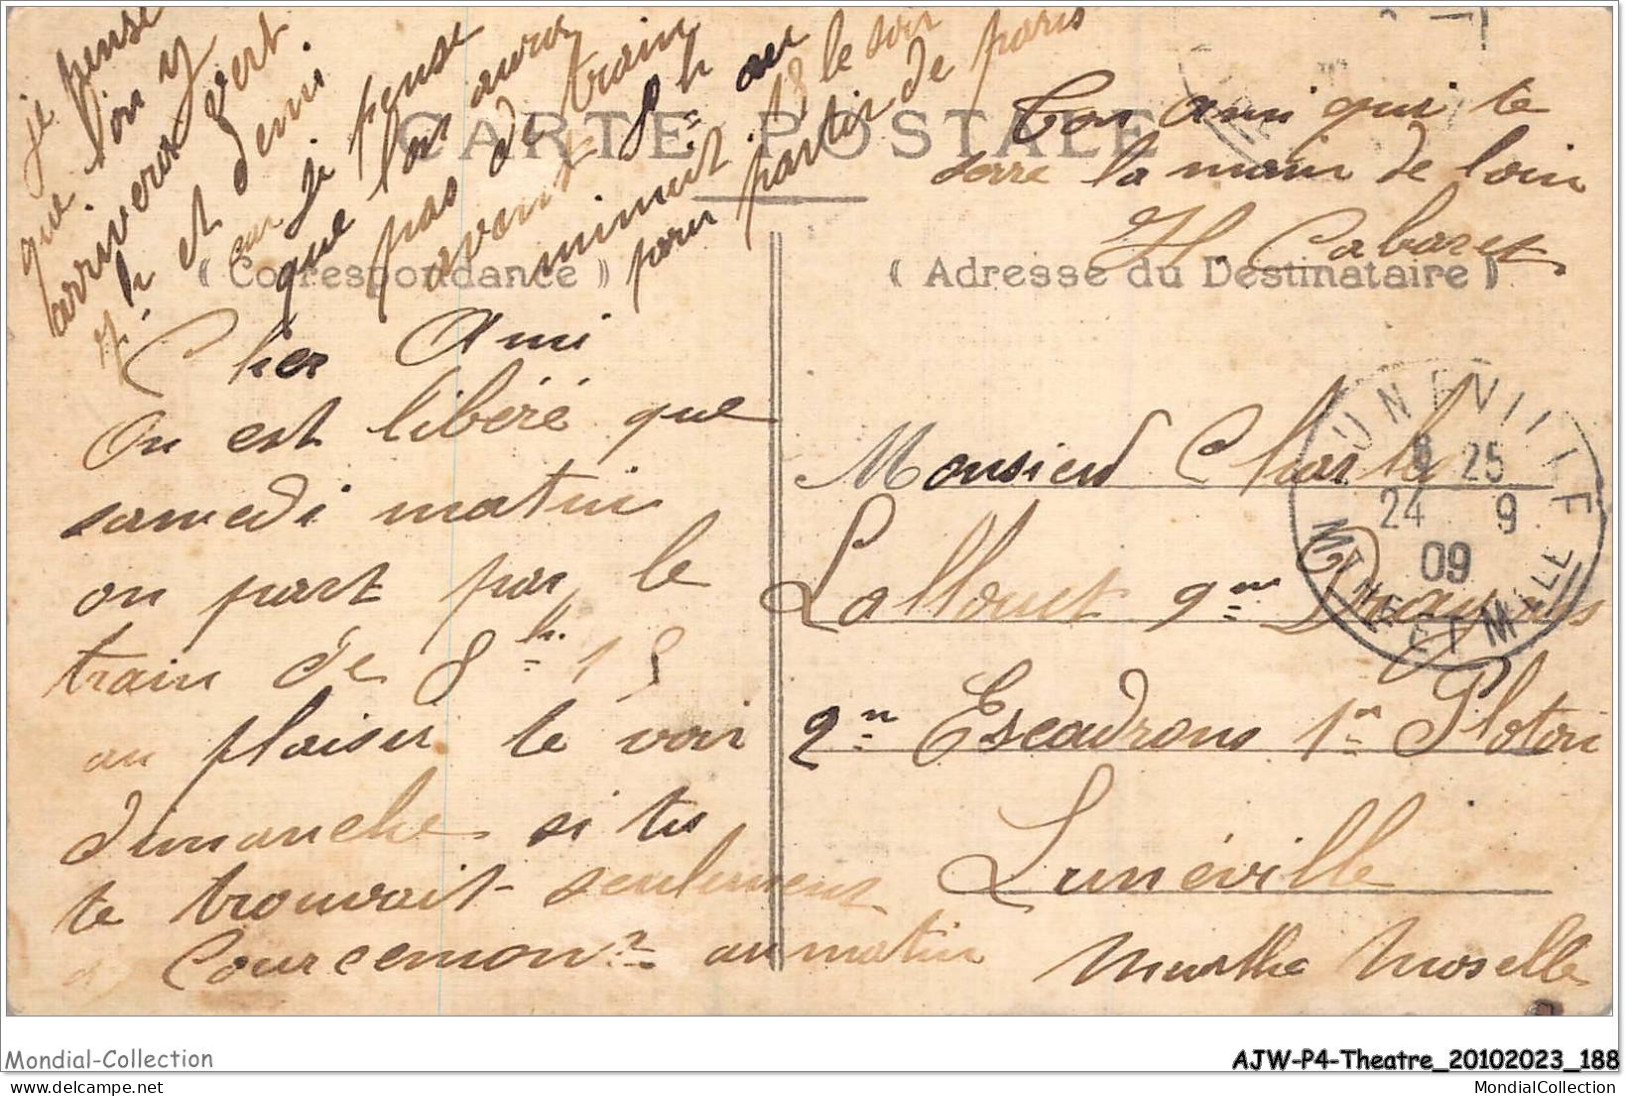 je pense
que l'on y
arriverez vert
7 h et demi
car je pense
que l'on auroz
pas de train
avant 8 h au
minuit 13 le soir
pour partir de paris
CARTE POSTALE
Ton ami qui te
serre la main de loin
H. Cabaret
( Correspondance )
( Adresse du Destinataire )
Cher Ami
On est libéré que
samedi matin
on part par le
train de 8 h. 15
au plaiser te voir
dimanche si tu
te trouvait seulement
a Courcemont au matin
Monsieur Charles
Lallouet 9me Dragons
2me Escadrons 1er Ploton
Lunéville
Murthe Moselle
LUNEVILLE
8 25
24 9
09
MTHE ET MLLE
Mondial-Collection
AJW-P4-Theatre_20102023_188
MondialCollection